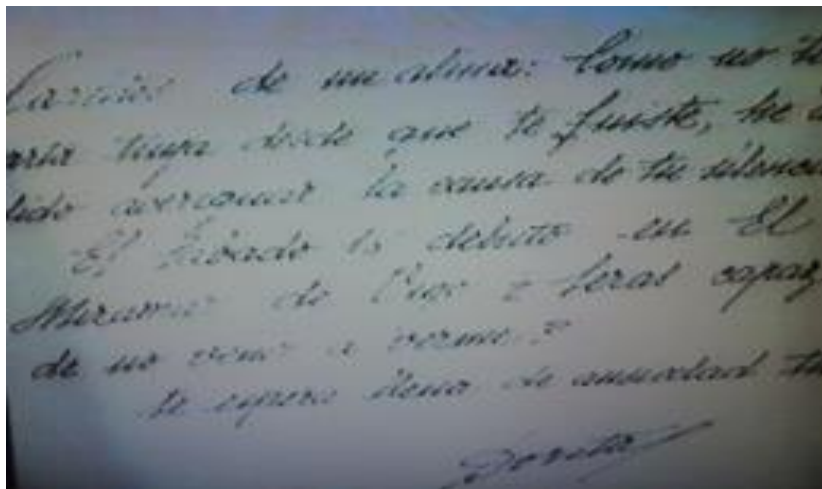 de mi alma: Como no t
tuya desde que te fuiste, he
averiguar la causa de tu silenci
El Sábado 15 debuto en El
Miramar de Vigo ¿ Seras capaz
de no venir a verme?
te espera llena de ansiedad tu
Dorita